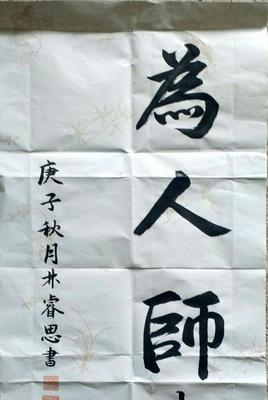 為人師
庚子秋月林睿思書